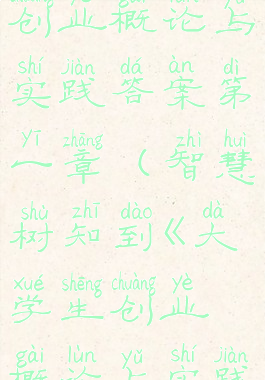 创业概论与
shí jiàn dá àn dì
实践答案第
yī zhāng zhì huì
一章（智慧
shù zhī dào dà
树知到《大
xué shēng chuàng yè
学生创业
gài lùn yǔ shí jiàn
概论与实践